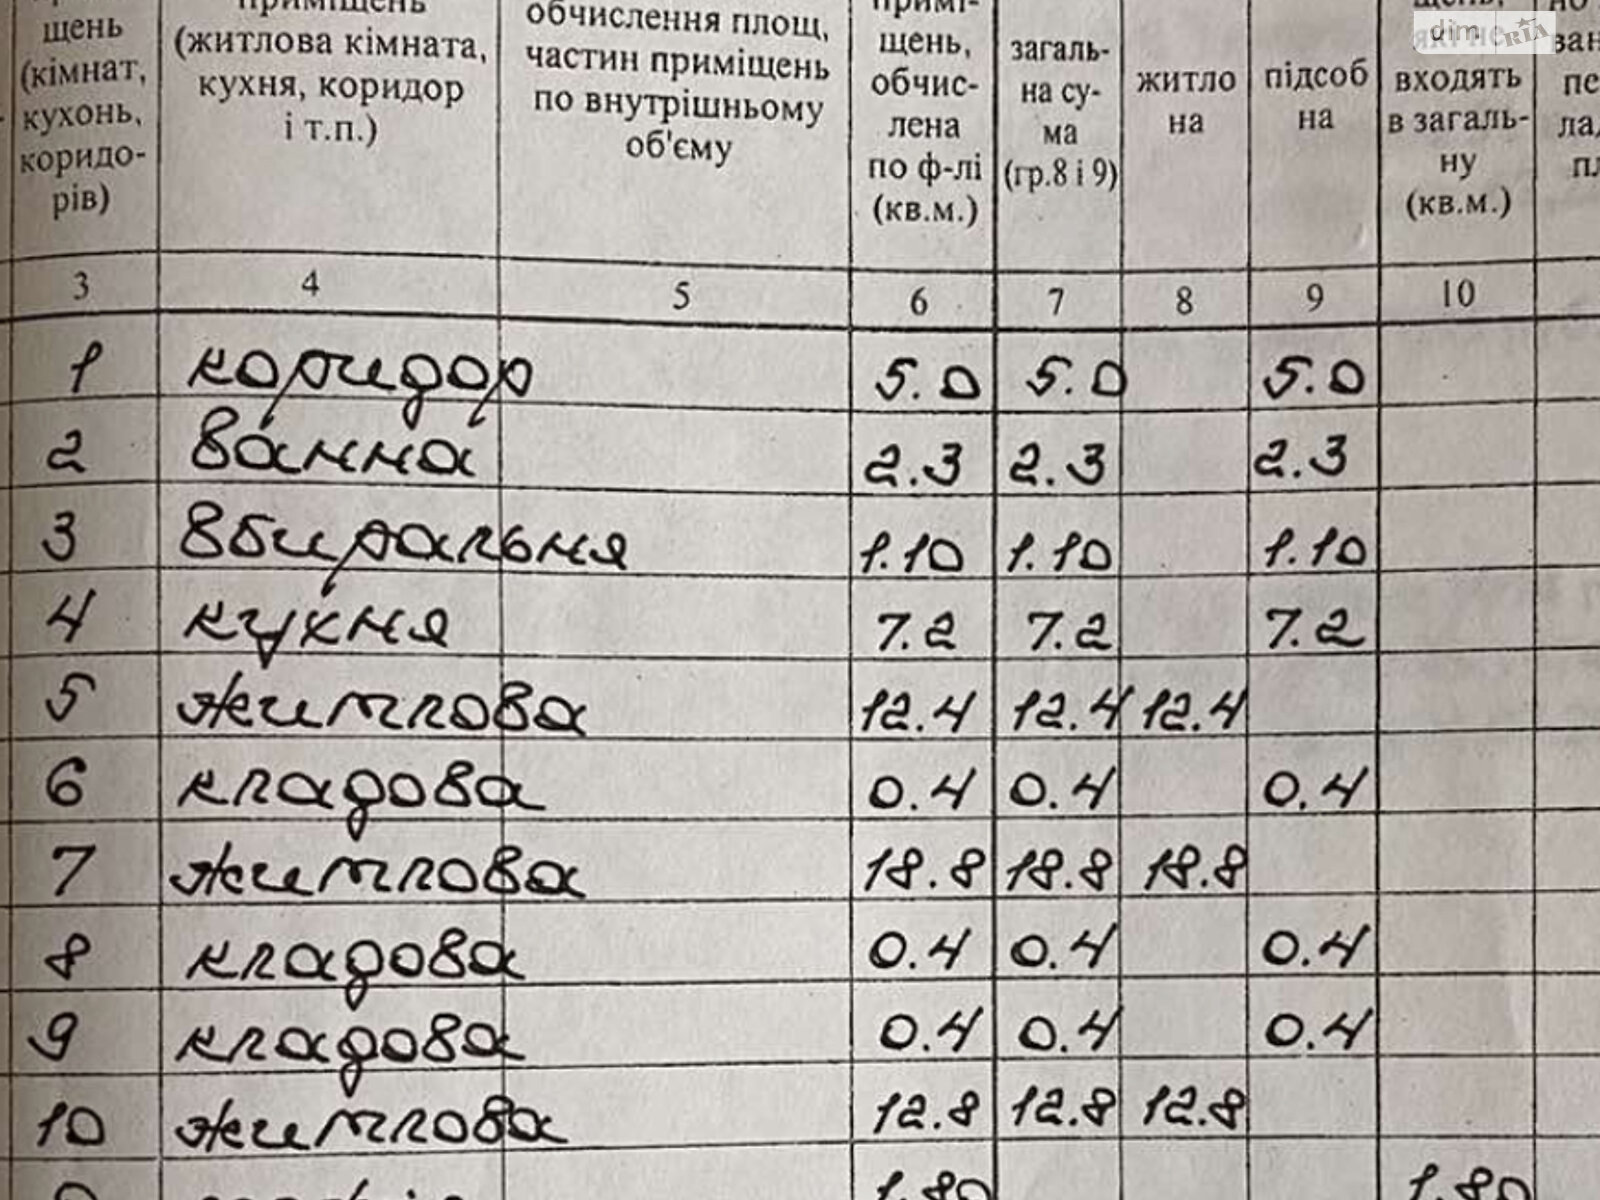 щень
(кімнат,
кухонь,
коридо-
рів)
приміщень
(житлова кімната,
кухня, коридор
і т.п.)
обчислення площ,
частин приміщень
по внутрішньому
об'єму
примі-
щень,
обчис-
лена
по ф-лі
(кв.м.)
загаль-
на су-
ма
(гр.8 і 9)
житло
на
підсоб
на
входять
в загаль-
ну
(кв.м.)
dim RIA
3 4 5 6 7 8 9 10
1 коридор 5.0 5.0 5.0
2 ванна 2.3 2.3 2.3
3 вбиральня 1.10 1.10 1.10
4 кухня 7.2 7.2 7.2
5 житлова 12.4 12.4 12.4
6 кладова 0.4 0.4 0.4
7 житлова 18.8 18.8 18.8
8 кладова 0.4 0.4 0.4
9 кладова 0.4 0.4 0.4
10 житлова 12.8 12.8 12.8
1.80 1.80